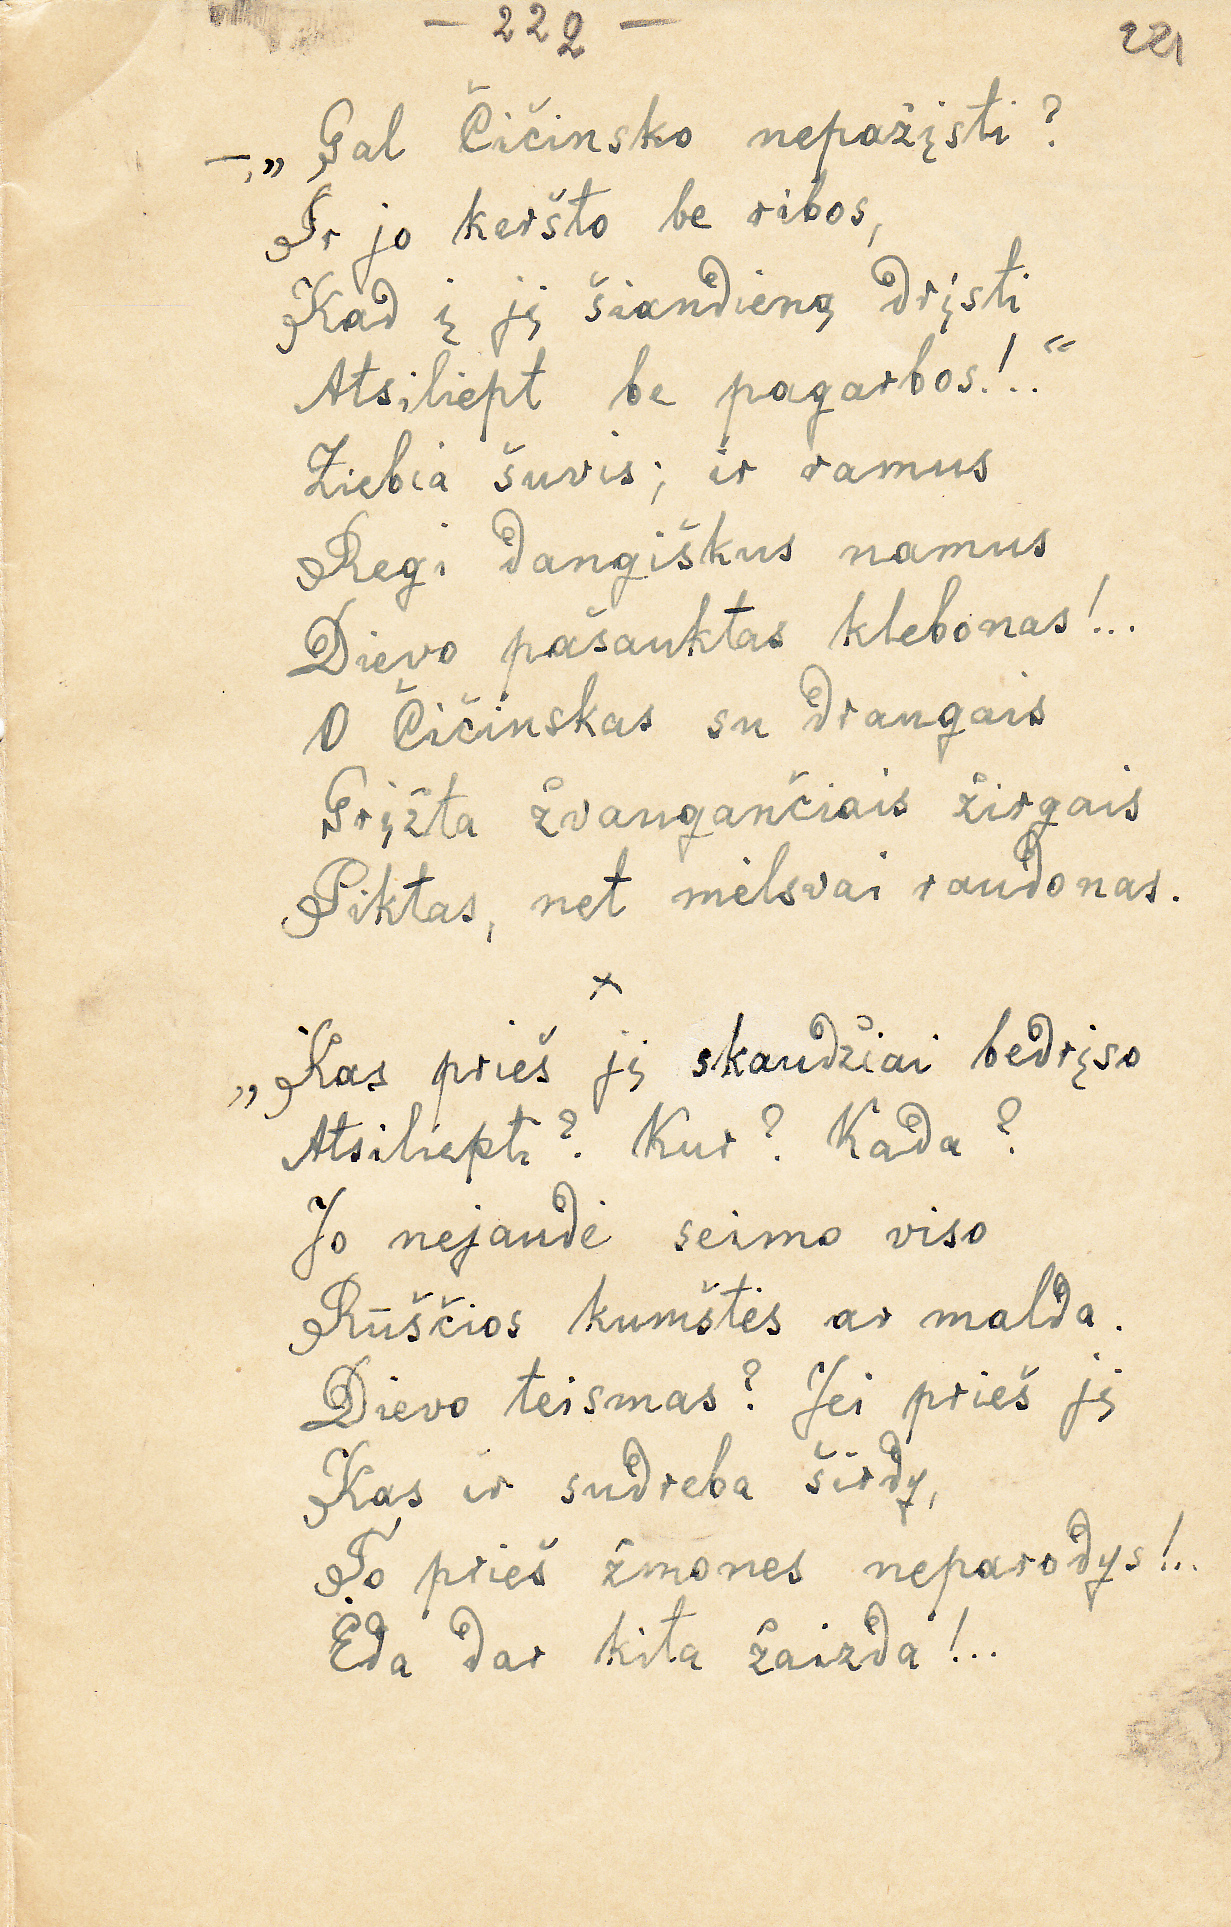 — 222 —
221
— „Gal Čičinsko nepažįsti?
Ir jo keršto be ribos,
Kad į jį šiandieną drįsti
Atsiliept be pagarbos!..“
Žiebia šuvis; ir ramus
Regi dangiškus namus
Dievo pašauktas klebonas!...
O Čičinskas su draugais
Grįžta žvangančiais žirgais
Piktas, net mėlsvai raudonas.
x
„Kas prieš jį skaudžiai bedrįso
Atsiliepti? Kur? Kada?
Jo nejaudė seimo viso
Rūščios kumštės ar malda.
Dievo teismas? Jei prieš jį
Kas ir sudreba širdy,
To prieš žmones neparodys!..
Ėda dar kita žaizda!...